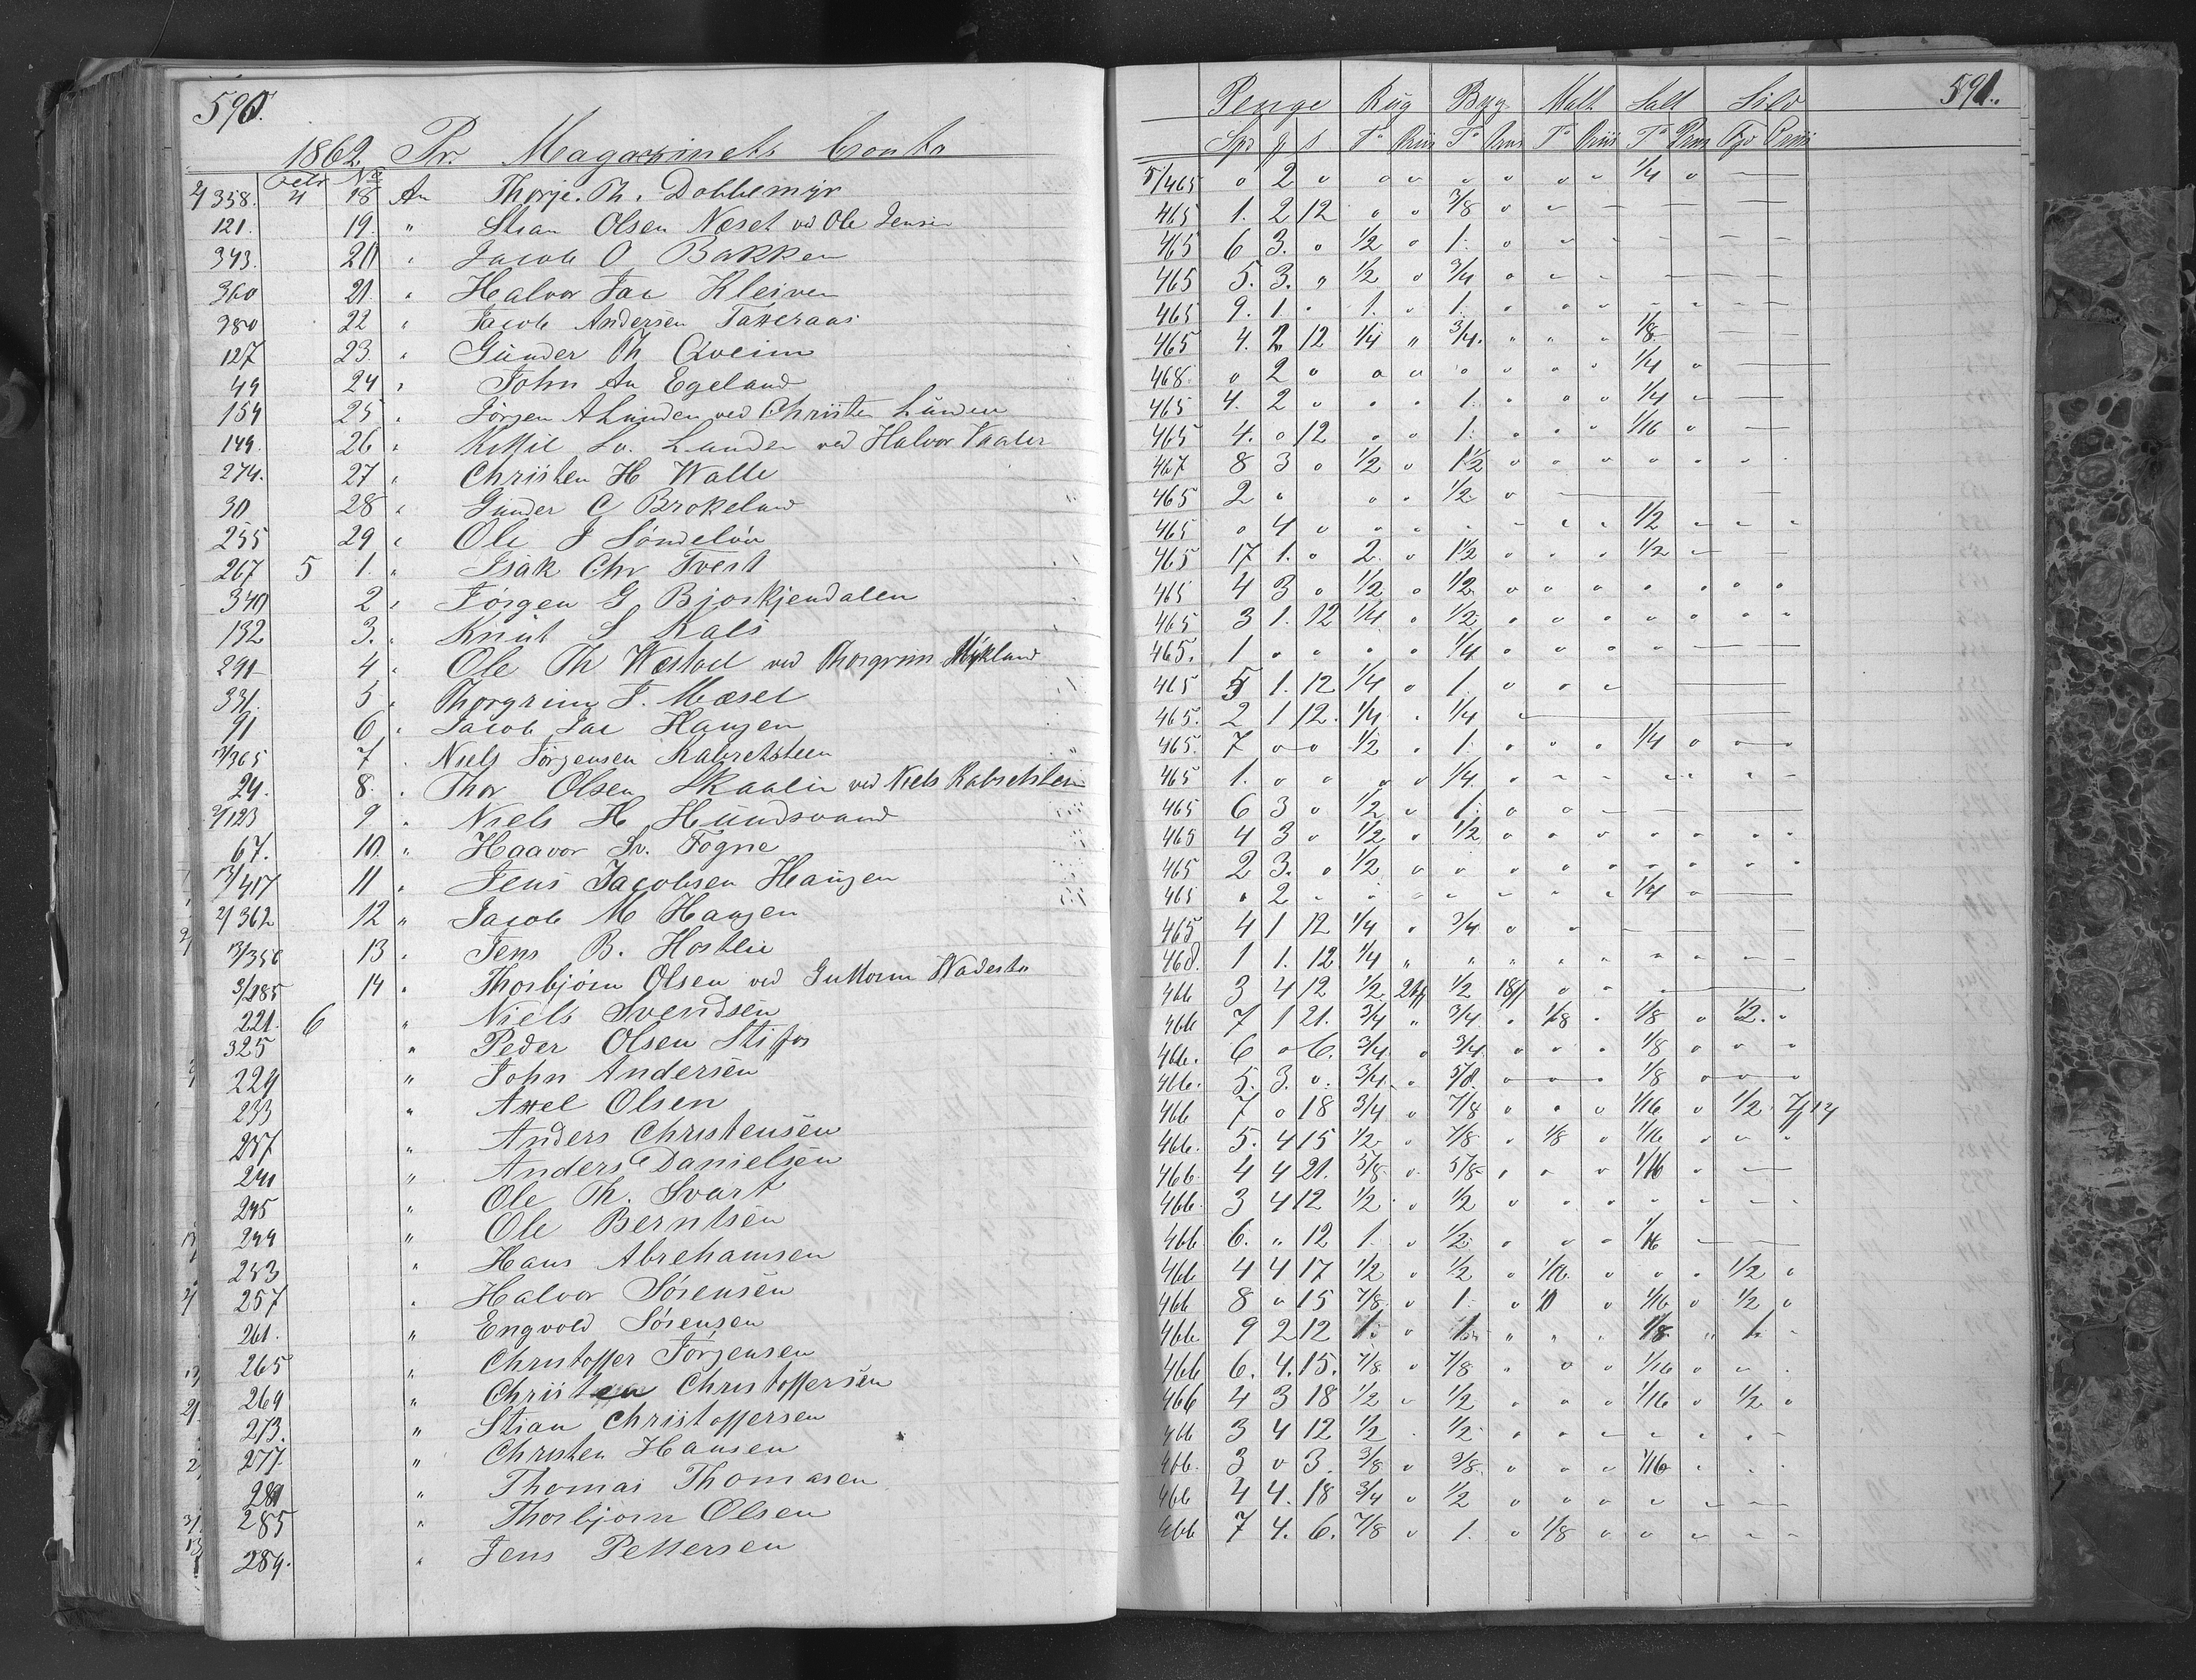 590.
1862. Pr. Magazinets Conto
Febr No
2/358. 4 18 An Thorje. Th. Dobbemyr
121. 19. " Stian Olsen Næset ved Ole Jensen
343. 20 " Jacob O Bakken
360 21. " Halvor Jac Kleiven
380 22 " Jacob Andersen Taxeraas
127 23. " Gunder Th Qveim
49 24 " John An Egeland
154 25 " Jørgen A Lunden ved Christen Lunden
149. 26 " Kittil Lunden ved Halvor Vaaler
274. 27 " Christen H Walle
30 28 " Gunder C Brokeland
255 29 " Ole J Søndeløv
267 5 1. " Isak Chr Tvest
340 2 " Jørgen G Bjorkjendalen
132 3. " Knut S Kals
291 4 " Ole Th Wæstøel ved Thorgrim Mykland
331. 5 " Thorgrim T. Mæsel
91 6 " Jacob Jac Haugen
13/365 7 " Niels Jørgensen Kabretsteen
24. 8. " Thor Olsen Skaalin ved Niels Kabretsteen
2/123 9 " Niels H Hundsvand
67. 10. " Haavor Sv. Fogne
13/417 11 " Jens Jacobsen Haugen
2/362 12 " Jacob M Haugen
13/356 13 " Jens B. Hostlie
3/285 14 " Thorbjørn Olsen ved Guttorm Wadesta
221. 6 " Niels Svendsen
325 " Peder Olsen Stifos
229 " John Andersen
233 " Axel Olsen
237 " Anders Christensen
241 " Anders Danielsen
245 " Ole Th. Svart
249 " Ole Berntsen
253 " Hans Abrehamsen
257 " Halvor Sørensen
261. " Engvold Sørensen
265 " Christoffer Jørgensen
269 " Christen Christoffersen
273. " Stian Christoffersen
277. " Christen Hansen
281 " Thomas Thomasen
285 " Thorbjørn Olsen
289. " Jens Pettersen
591.
Penge Rug Byg Malt Salt Sild
Spd ƒ s Tø Priis Tø Priis Tø Priis Tø Priis Tø Priis
5/465 " 2 " " " " " " " 1/4 "
465 1. 2 12 " " 3/8 "
465 6 3. " 1/2 " 1. "
465 5. 3. " 1/2 " 3/4 "
465 9. 1. " 1. " 1. "
465 4. 2 12 1/4 " 3/4. " " " 1/8
468. " 2 " " " " " " " 1/4 "
465 4. 2 " " " 1. " " " 1/4
465 4. " 12 " " 1. " " " 1/16 "
467 8 3 " 1/2 " 1 1/2 " " " " " " "
465 2 " " " 1/2 "
465 " 4 " " " " " " " 1/2 " " "
465 17 1. " 2. " 1 1/2 " " " 1/2
465 4 3 " 1/2 " 1/2 " " " " " " "
465 3 1. 12 1/4 " 1/2 " " " " " " "
465. 1 " " " " 1/4 " " " "
465 5 1. 12 1/4 " 1. " " "
465. 2 1 12. 1/4 " 1/4 "
465. 7 " " 1/2 " 1. " " " 1/4 " " "
465 1. " " " " 1/4. " " " " "
465 6 3 " 1/2 " 1. " "
465 4 3 " 1/2 " 1/2 " " " " " " "
465 2 3. " 1/2 " " " " " " " " "
465 " 2 " " " " " " " 1/4 "
465 4 1 12 1/4 " 3/4 " "
468. 1 1. 12 1/4 " " " " " " "
466 3 4 12 1/2 1/2 " " "
466 7 1 21. 3/4 " 3/4. " 1/8 " 1/8 " 1/2. "
466. 6 " 6. 3/4. " 3/4. " " " 1/8 " " "
466. 5. 3. " 3/4. " 5/8. " " " 1/8 " " "
466 7 " 18 3/4 " 7/8 " " " 1/16 " 1/2
466. 5. 4 15 1/2 " 7/8 " 1/8 " 1/16 " " "
466. 4 4 21. 5/8 " 5/8 " " " 1/16 "
466. 3 4 12 1/2 " 1/2 " " " " " " "
466. 6. " 12 1. " 1/2 " " " 1/16
466 4 4 17 1/2 " 1/2 " 1/16 " " " 1/2 "
466 8 " 15 7/8 " 1. " " 1/16 " 1/2 "
466 9 2 12 1. " 1. " " " 1/8 " 1. "
466 6. 4. 15. 7/8 " 7/8 " " " 1/16 " "
466 4 3 18 1/2 " 1/2 " " " 1/16 " 1/2 "
466 3 4 12 1/2 " 1/2 " " " " " " "
466. 3 " 3. 3/8 " 3/8. " " " 1/16 " " "
466 4 4. 18 3/4 " 1/2 " " " "
466 7 4. 6. 7/8 " 1. " 1/8 " " " " "